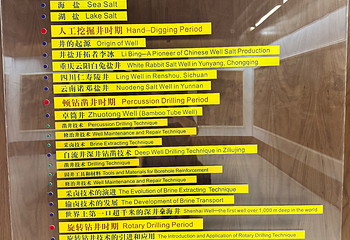 海 盐 Sea Salt
湖 盐 Lake Salt
人工挖掘井时期 Hand-Digging Period
井的起源 Origin of Well
井盐开拓者李冰 Li Bing—A Pioneer of Chinese Well Salt Production
重庆云阳白兔盐井 White Rabbit Salt Well in Yunyang, Chongqing
四川仁寿陵井 Ling Well in Renshou, Sichuan
云南诺邓盐井 Nuodeng Salt Well in Yunnan
顿钻凿井时期 Percussion Drilling Period
卓筒井 Zhuotong Well (Bamboo Tube Well)
凿井技术 Percussion Drilling Technique
修治井技术 Well Maintenance and Repair Technique
采卤技术 Brine Extracting Technique
自流井深井钻凿技术 Deep Well Drilling Technique in Ziliujing
凿井技术 Drilling Technique
Tools and Materials for Borehole Reinforcement
修治井技术 Well Maintenance and Repair Technique
采卤技术的演进 The Evolution of Brine Extracting Technique
输卤技术的发展 The Development of Brine Transport Technique
世界上第一口超千米的深井燊海井 Shenhai Well—the first well over 1,000 m deep in the world
旋转钻井时期 Rotary Drilling Period
旋转钻井技术的引进和应用 The Introduction and Application of Rotary Drilling Technique